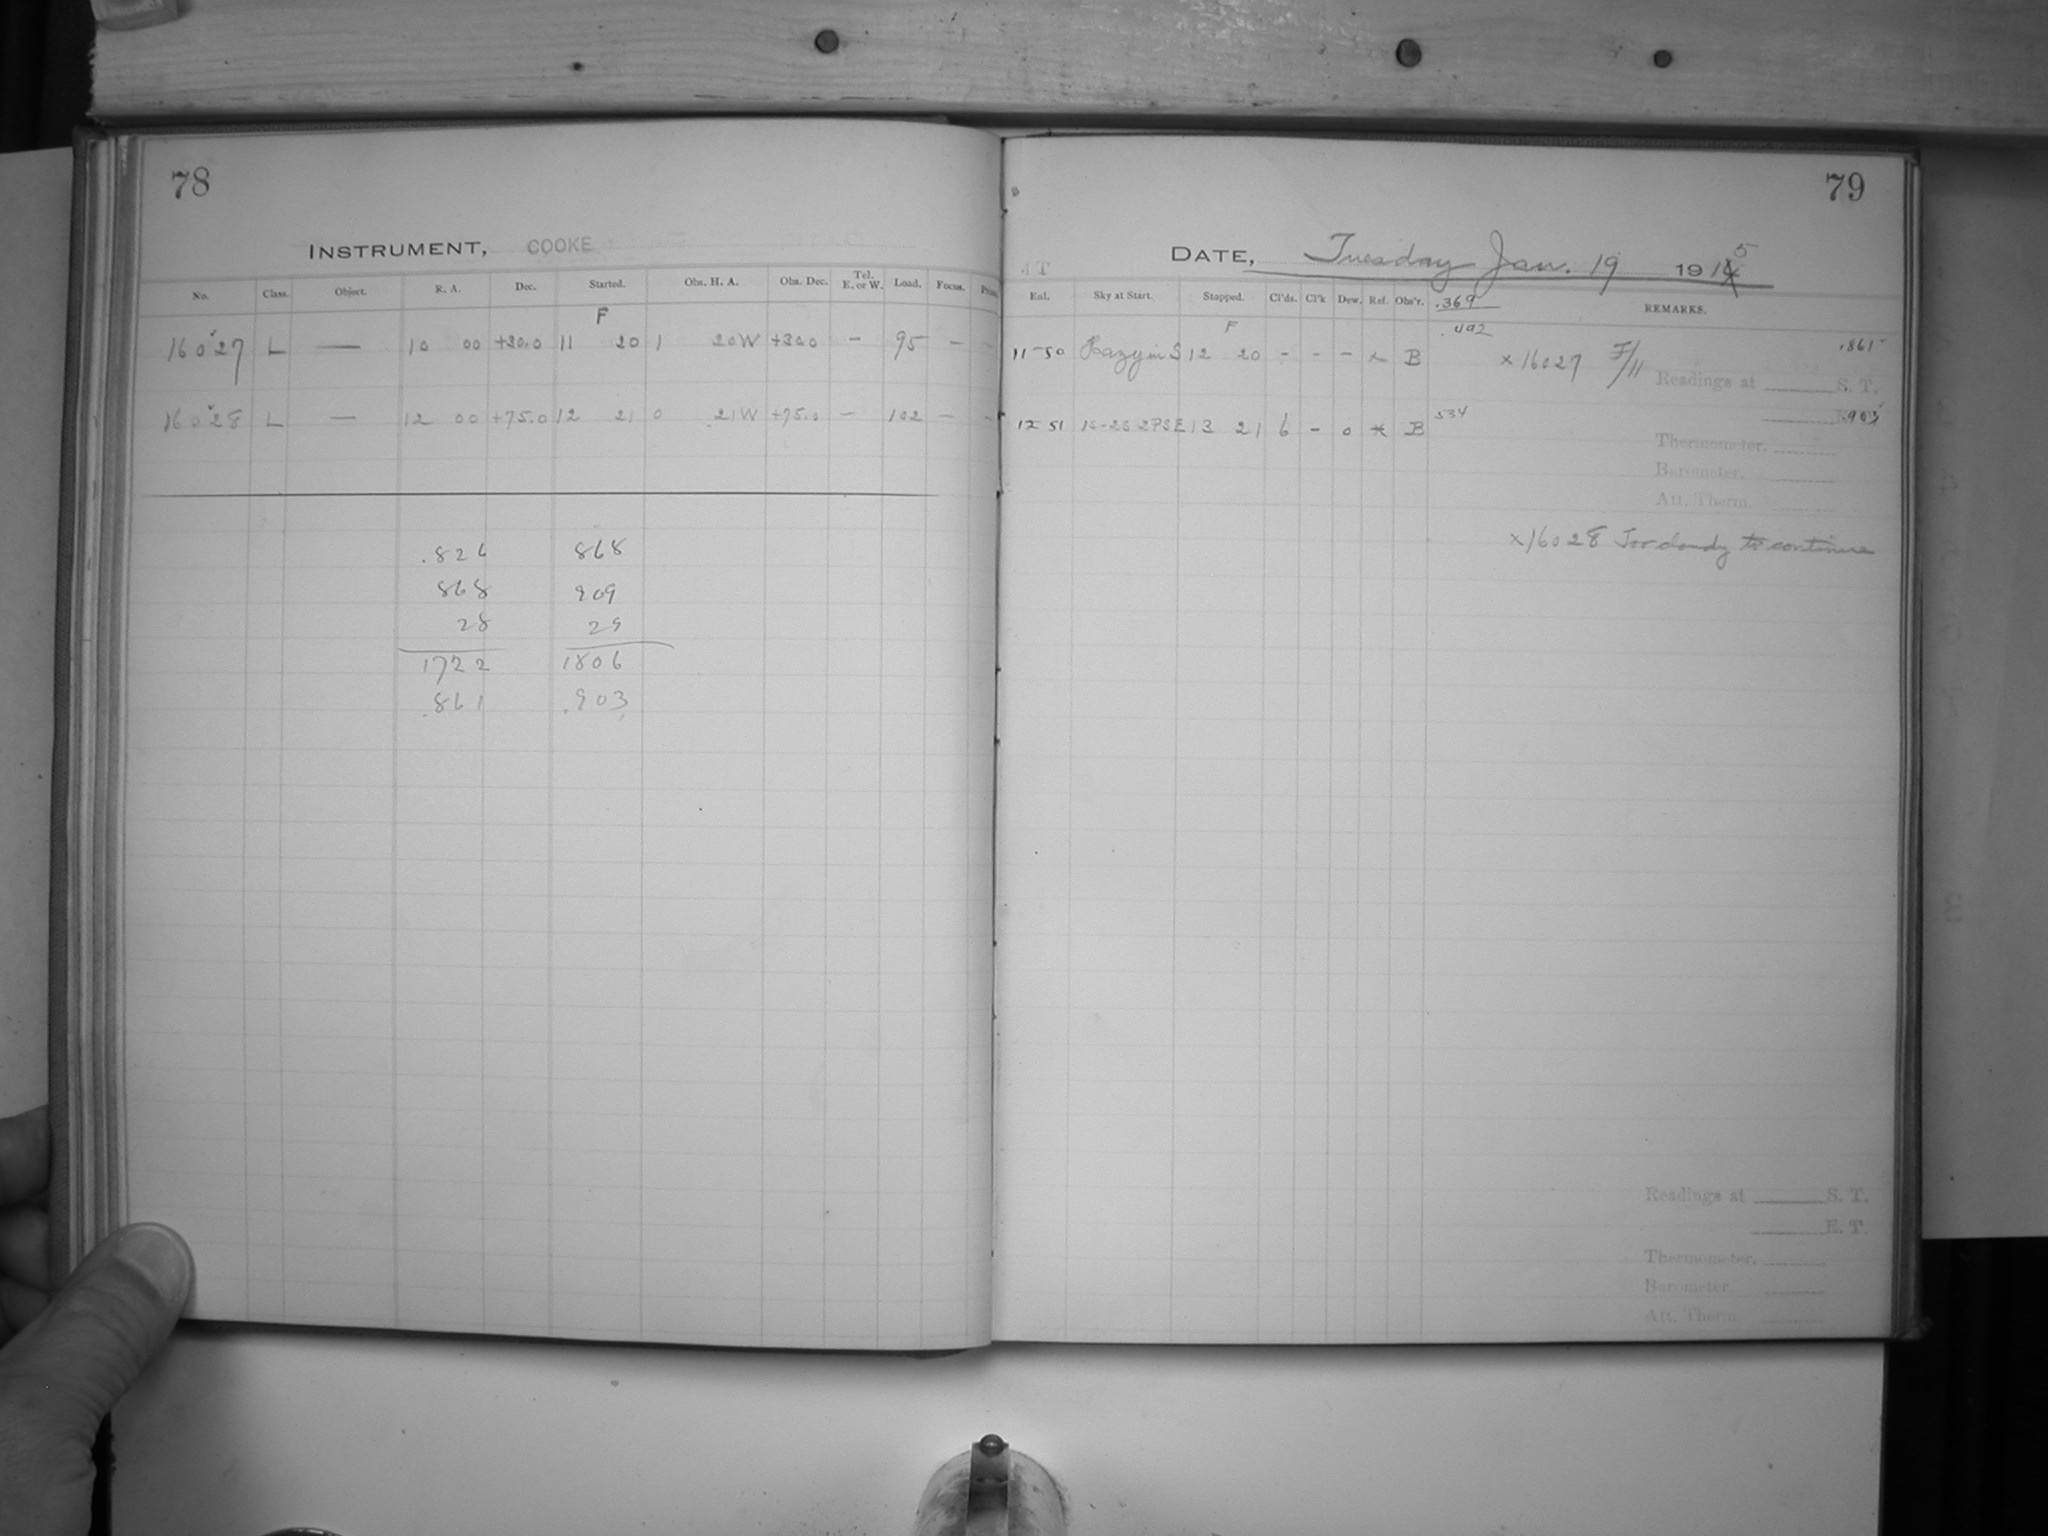 78
INSTRUMENT, COOKE
No. Class. Object. R. A. Dec. Started. Obs. H. A. Obs. Dec. Tel. E. or W. Load. Focus.
F
16027 L — 10 00 +30.0 11 20 1 20W +30.0 — 95 — —
16028 L — 12 00 +75.0 12 21 0 21W +75.0 — 102 — —
.826 868
868 909
28 29
1722 1806
.861 .903
79
DATE, Tuesday Jan. 19 1915
Enl. Sky at Start. Stopped. Cl'ds. Cl'k Dew. Ref. Obs'r. .369 REMARKS.
F .492
11 50 Hazy in S 12 20 - - - B x 16027 F/11 .861
Readings at S. T.
12 51 1S-2S 2PSE 13 21 6 - 0 B 534 .903
Thermometer.
Barometer.
Att. Therm.
x 16028 Too cloudy to continue
Readings at S. T.
E. T.
Thermometer.
Barometer.
Att. Therm.